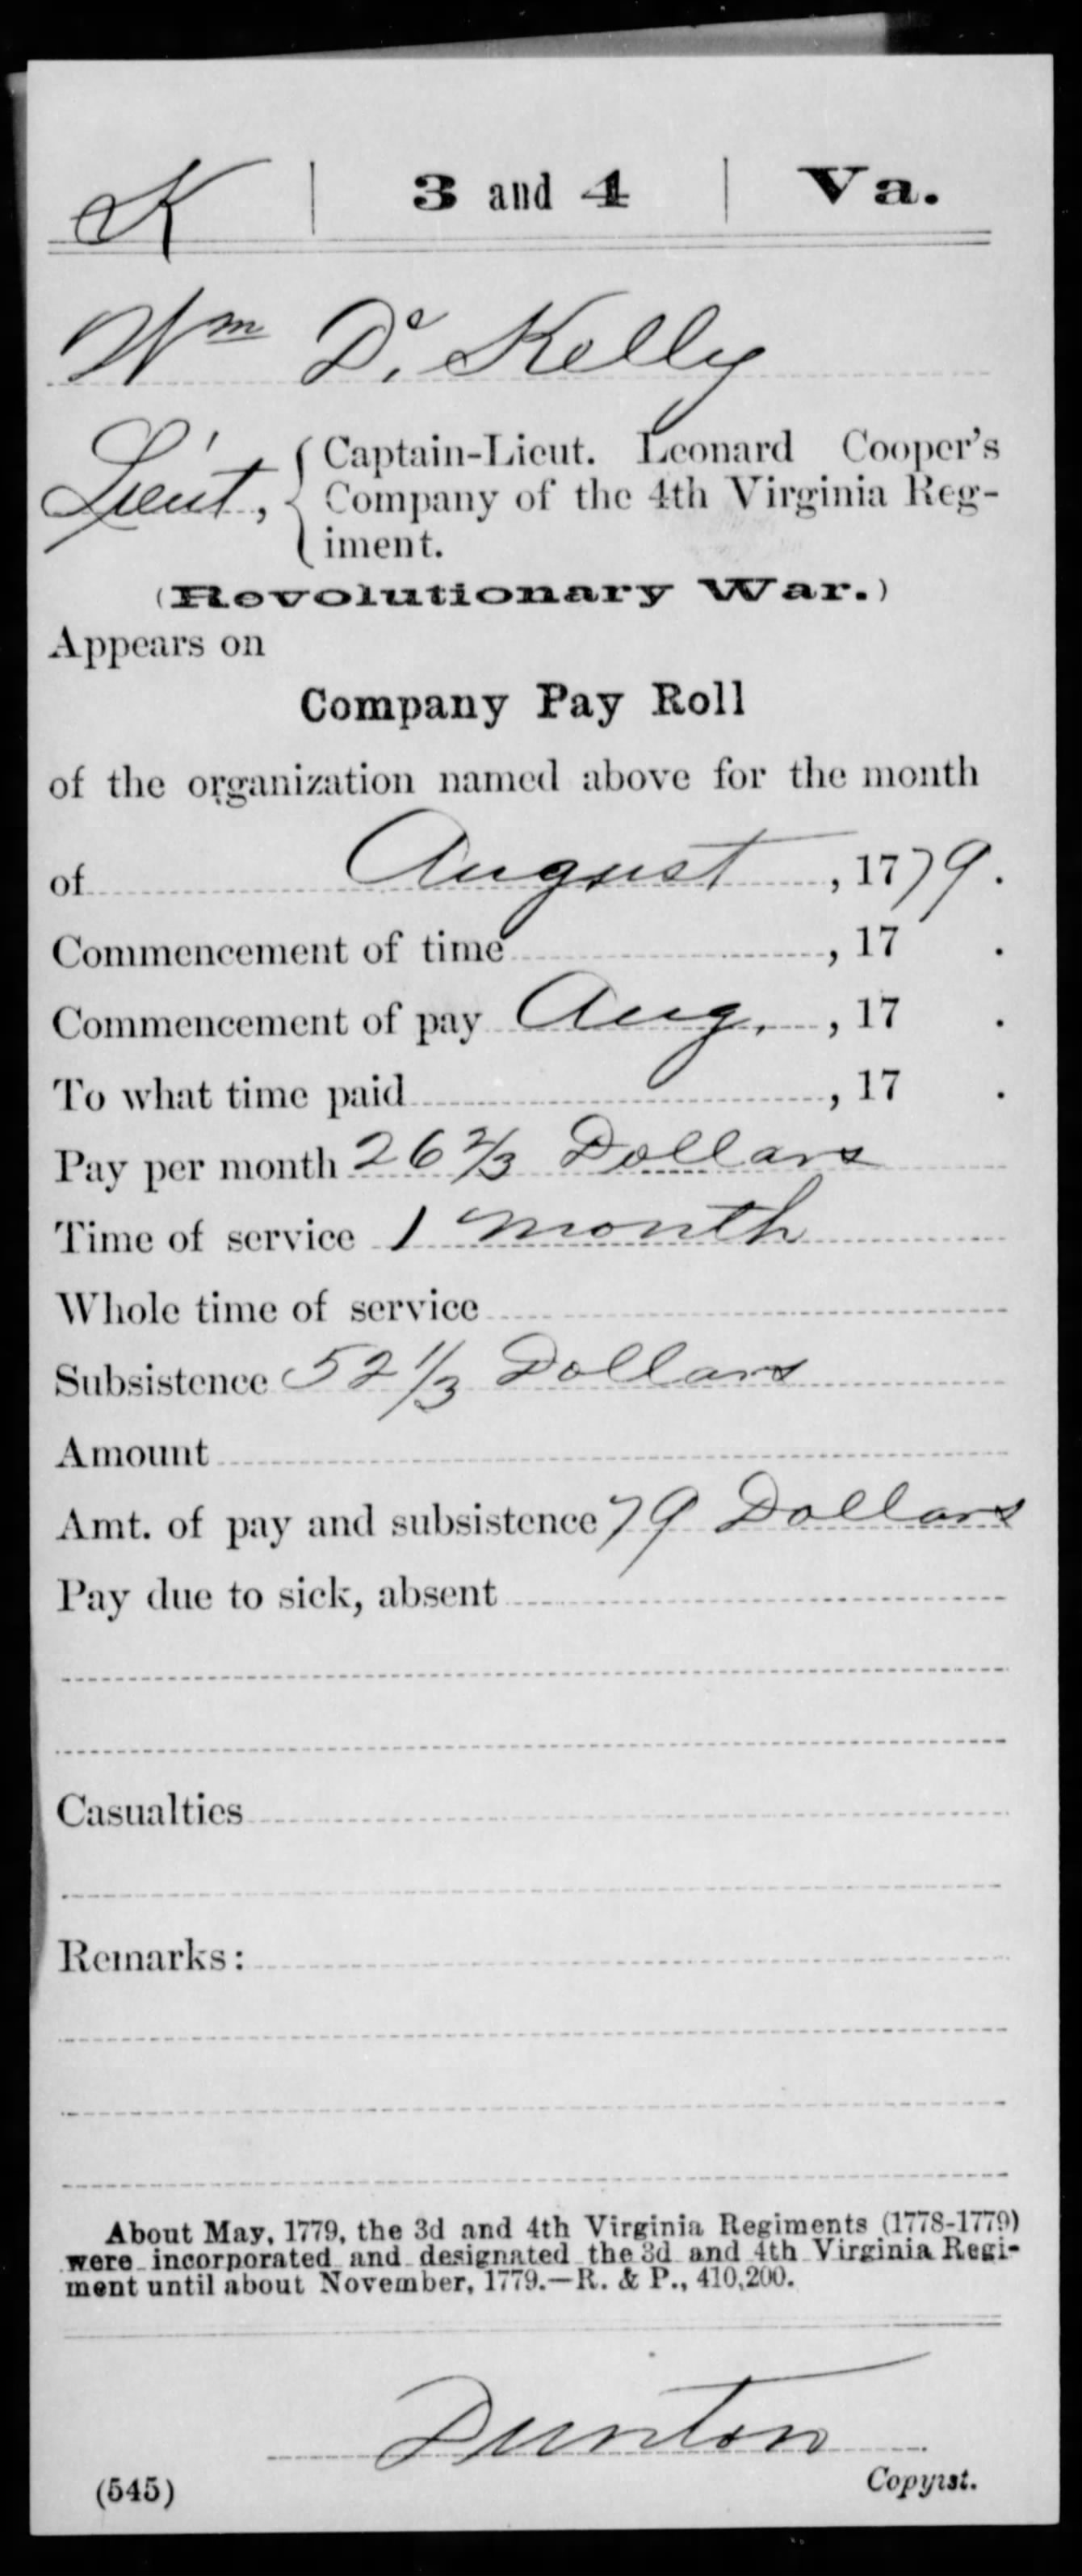 K | 3 and 4 | Va.
Wm Do. Kelly
Lieut, { Captain-Lieut. Leonard Cooper's
Company of the 4th Virginia Reg-
iment.
(Revolutionary War.)
Appears on
Company Pay Roll
of the organization named above for the month
of August, 1779.
Commencement of time, 17 .
Commencement of pay Aug., 17 .
To what time paid, 17 .
Pay per month 26 2/3 Dollars
Time of service 1 month
Whole time of service
Subsistence 52 1/3 Dollars
Amount
Amt. of pay and subsistence 79 Dollars
Pay due to sick, absent
Casualties
Remarks:
About May, 1779, the 3d and 4th Virginia Regiments (1778-1779)
were incorporated and designated the 3d and 4th Virginia Regi-
ment until about November, 1779.—R. & P., 410,200.
Dunton
Copyist.
(545)